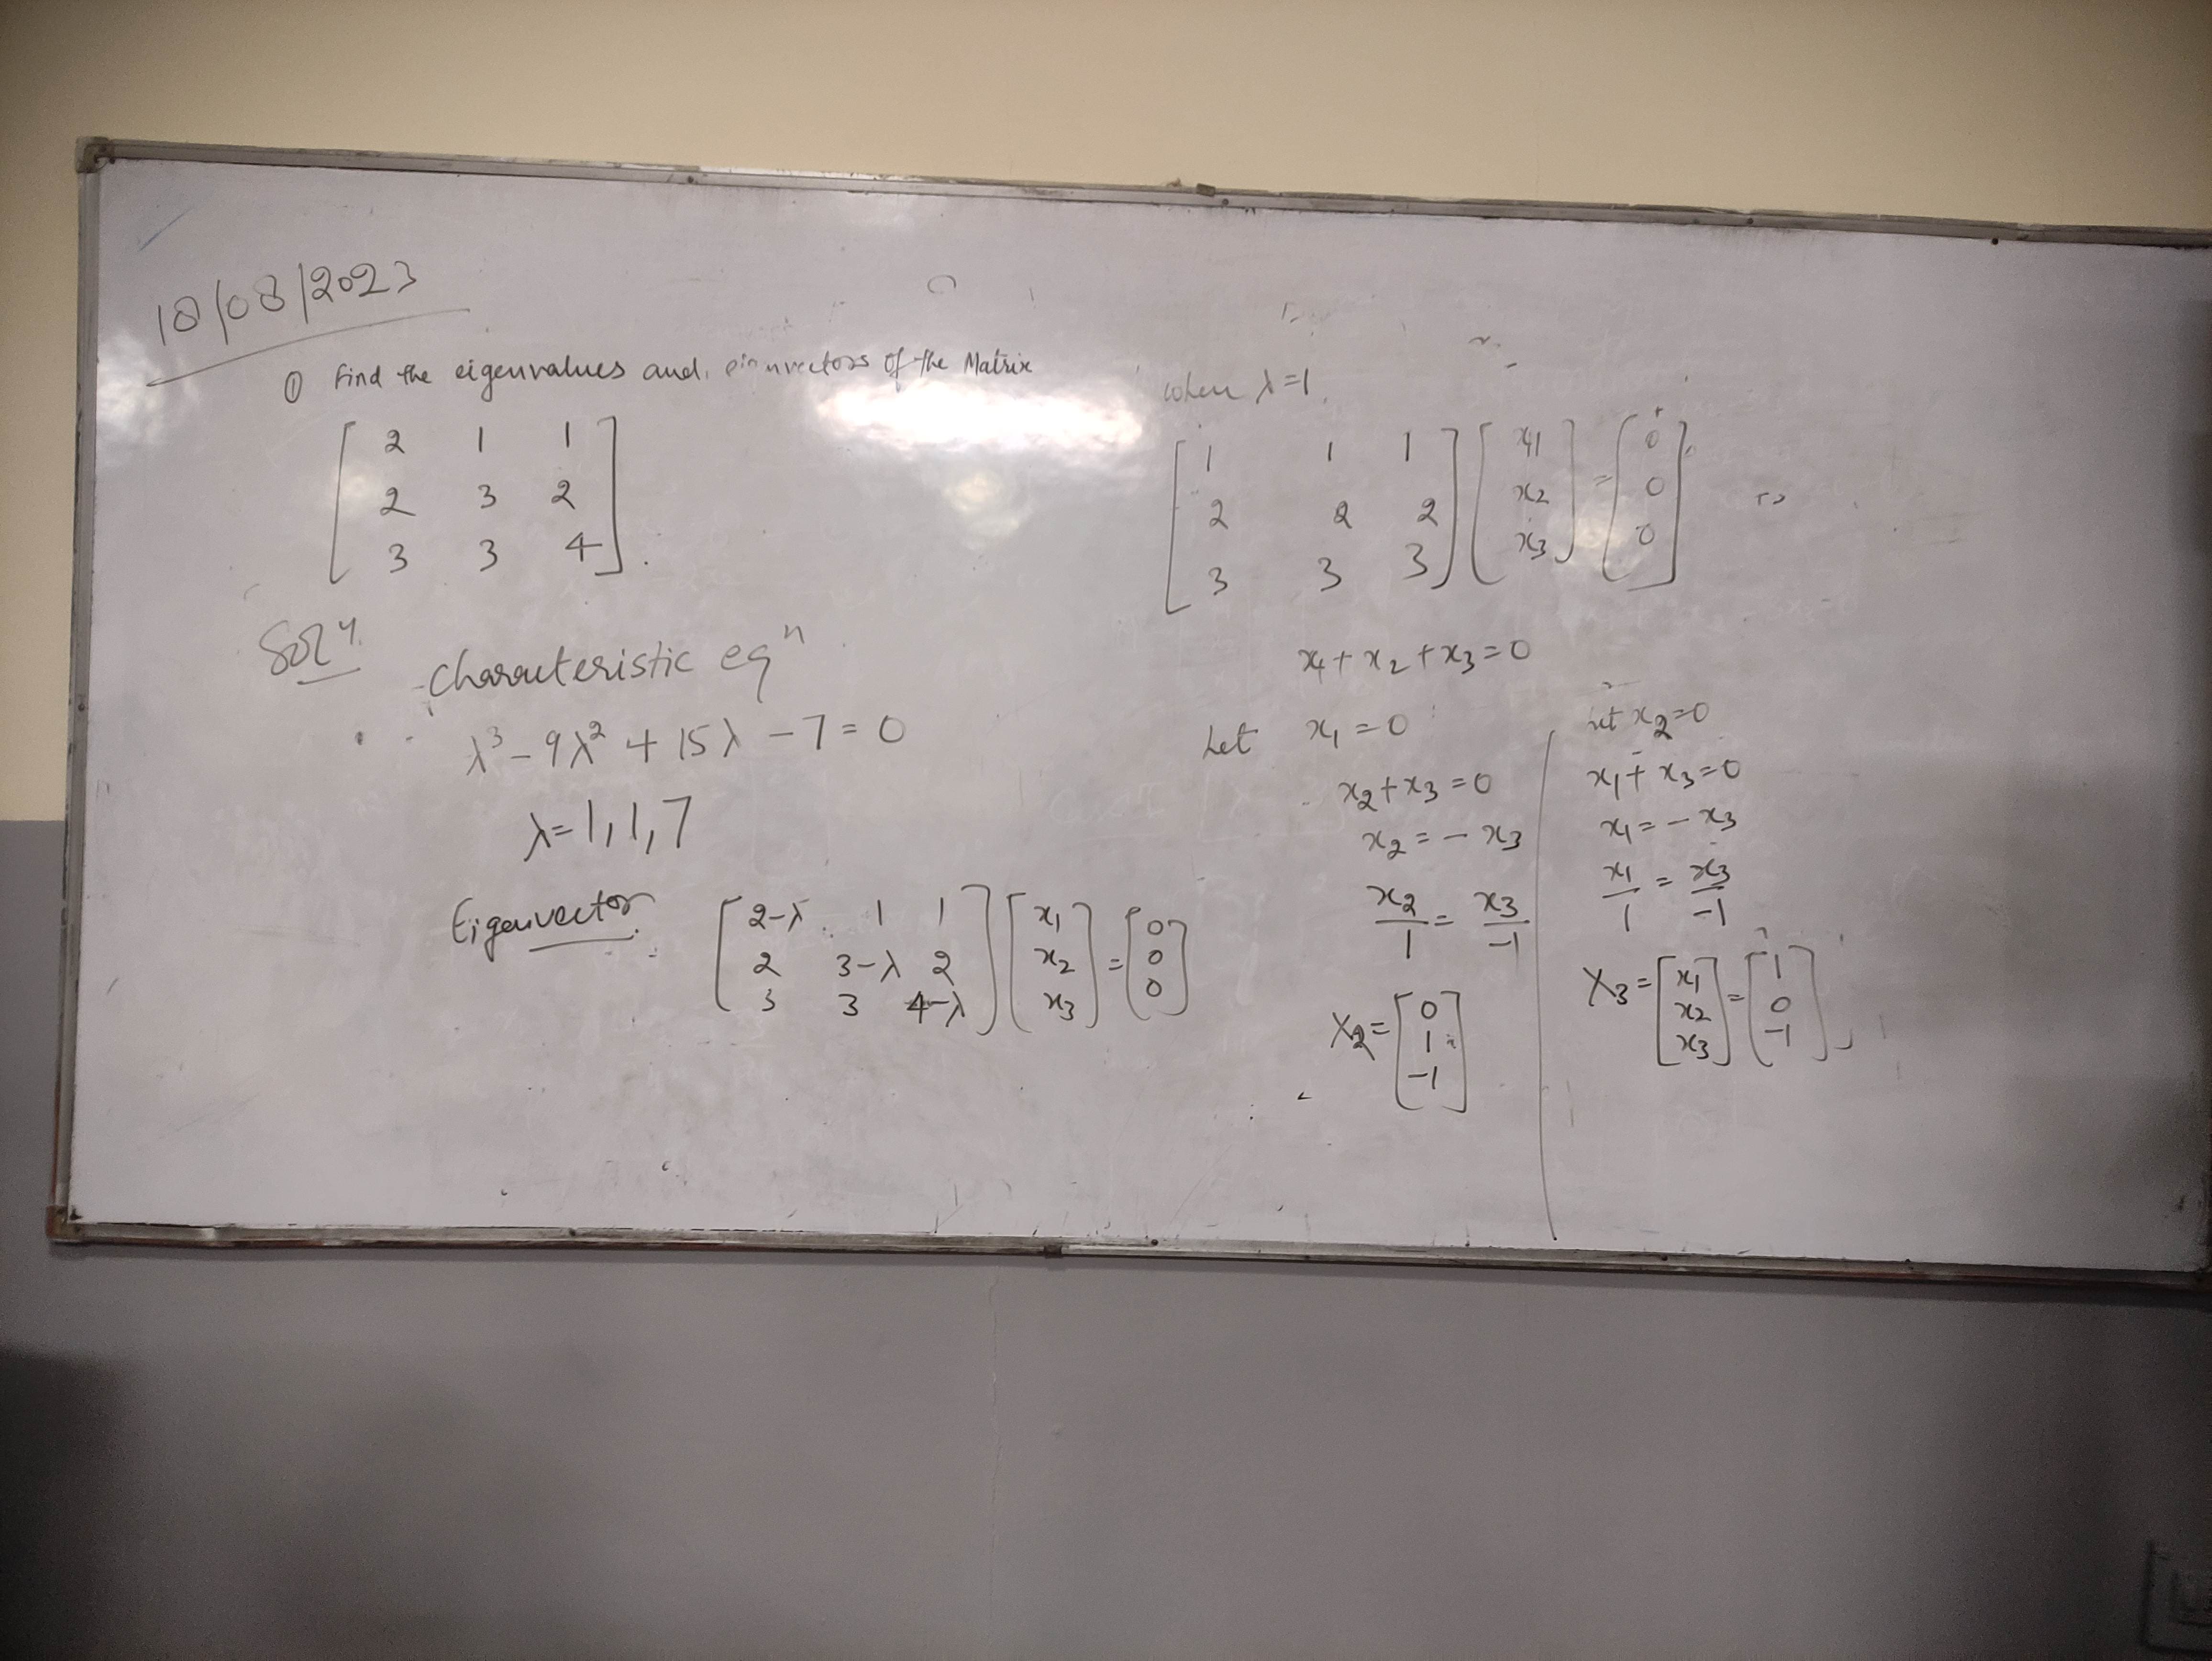 18/08/2023
① Find the eigenvalues and eigenvectors of the Matrix
[ 2 1 1
2 3 2
3 3 4 ].
Solⁿ
characteristic eqⁿ
λ³ - 9λ² + 15λ - 7 = 0
λ = 1, 1, 7
Eigenvector
[ 2-λ 1 1 ] [ x₁ ] = [ 0 ]
[ 2 3-λ 2 ] [ x₂ ] = [ 0 ]
[ 3 3 4-λ ] [ x₃ ] = [ 0 ]
when λ = 1,
[ 1 1 1 ] [ x₁ ] = [ 0 ]
[ 2 2 2 ] [ x₂ ] = [ 0 ]
[ 3 3 3 ] [ x₃ ] = [ 0 ]
x₁ + x₂ + x₃ = 0
Let x₁ = 0
x₂ + x₃ = 0
x₂ = - x₃
x₂/1 = x₃/-1
X₂ = [ 0
1
-1 ]
x₂ = 0
x₁ + x₃ = 0
x₁ = - x₃
x₁/1 = x₃/-1
X₃ = [ x₁ ] = [ 1 ]
[ x₂ ] = [ 0 ]
[ x₃ ] = [ -1 ]